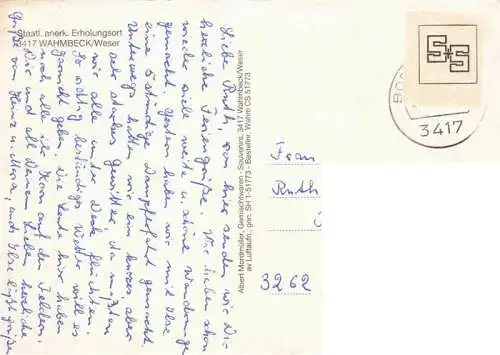 Staatl. anerk. Erholungsort
3417 WAHMBECK/Weser
Liebe Ruth, von hier senden wir Dir
herzliche Feriengrüße. Wir haben schon
wieder viele weite u. schöne Wanderungen
gemacht. Gestern haben wir mit Ilse
eine 5 stündige Dampferfahrt gemacht.
Unterwegs hatten wir ein kurzes aber
sehr starkes Gewitter, da mußten
wir alle unter Deck flüchten.
So richtig beständiges Wetter will es
garnicht geben. Die Leute hier haben
noch alle ihr Korn auf den Feldern.
Dir und all Deinen Lieben herzliche
Grüße von Heinz u. auch Ilse läßt grüßen
Albert Mordmüller, Gemischtwaren - Souvenirs, 3417 Wahmbeck/Weser
av Luftaufn., gen. SH 1-51773 - Bestellnr. Wahm CS 51773
BO
3417
Frau
Ruth
3262